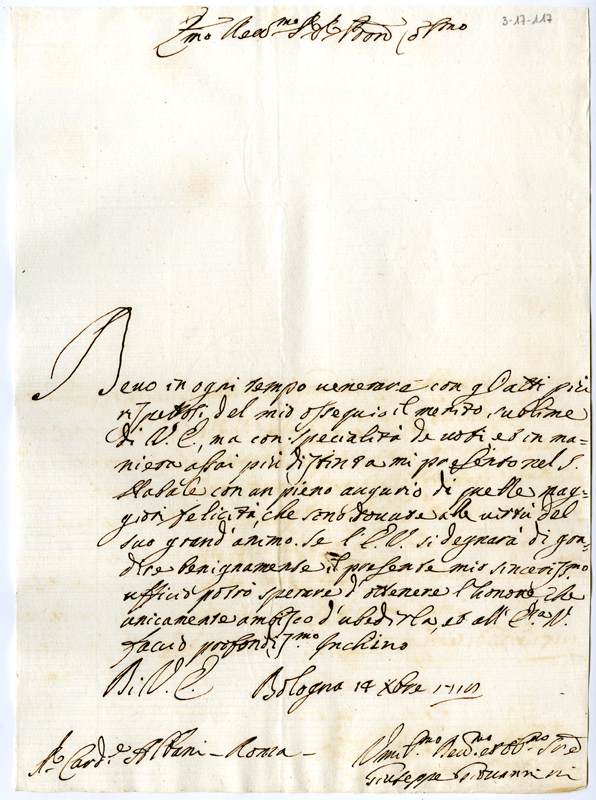 3-17-117
Emo Revmo Sr Sr Pron Colmo
Devo in ogni tempo venerare con gl'atti più
rispettosi del mio ossequio il merito sublime
di V. E., ma con specialità de voti et in ma=
niera assai più distinta mi presento nel S.
Natale con un pieno augurio di quelle mag=
giori felicità, che sono dovute alle virtù del
suo grand'animo. Se l'E. V. si degnarà di gra=
dire benignamente il presente mio sincerissmo
ufficio potrò sperare d'ottenere l'honore, che
unicamente ambisco d'ubedirla, et all' Eza V.
faccio profondissmo Inchino
Di V. E. Bologna 18 Xbre
Sr Carde Albani - Roma - Umilmo Devmo et Obmo Sre
Giuseppe Giovannini